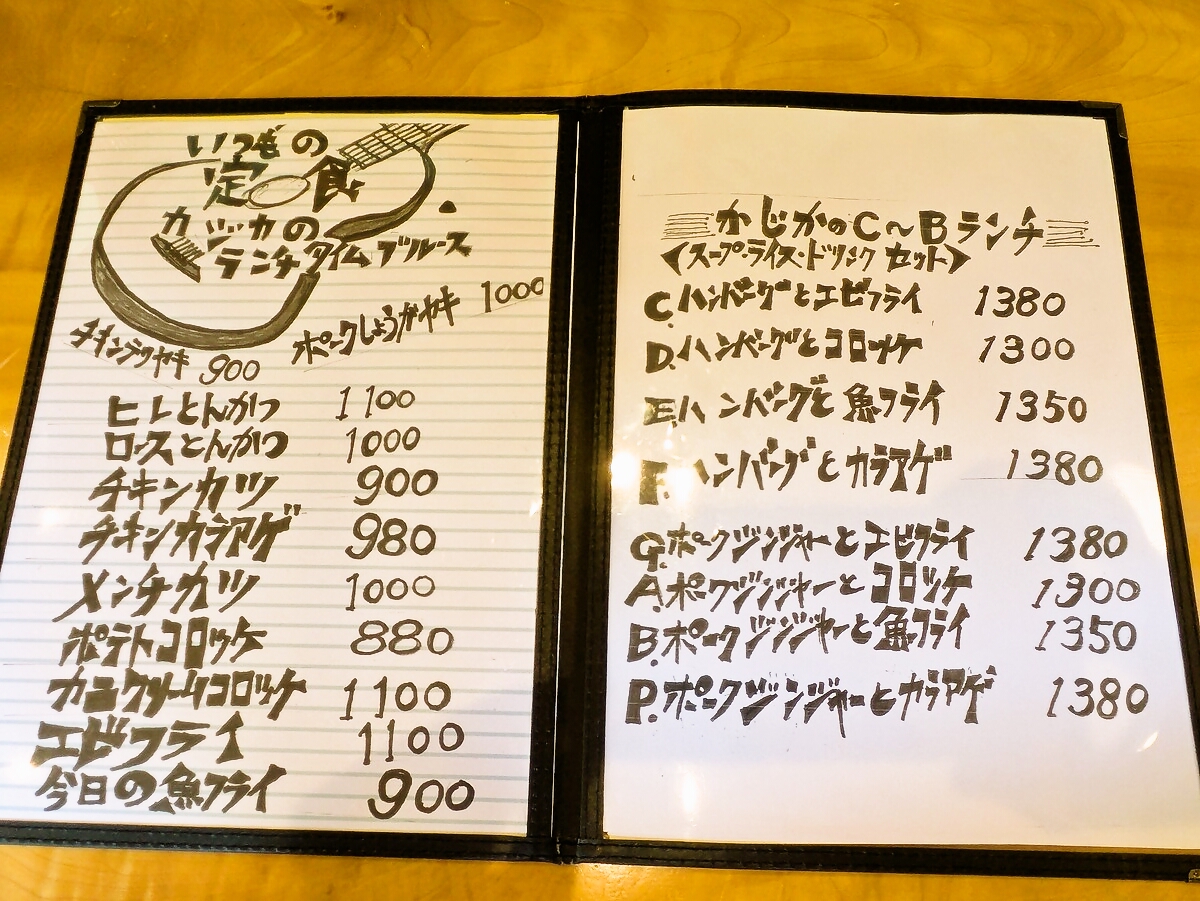 いつもの
定食
カジカの
ランチタイムブルース
チキンテリヤキ 900
ポークしょうがヤキ 1000
ヒレとんかつ 1100
ロースとんかつ 1000
チキンカツ 900
チキンカラアゲ 980
メンチカツ 1000
ポテトコロッケ 880
カニクリームコロッケ 1100
エビフライ 1100
今日の魚フライ 900
かじかのC〜Bランチ
<スープ・ライス・ドリンクセット>
C.ハンバーグとエビフライ 1380
D.ハンバーグとコロッケ 1300
E.ハンバーグと魚フライ 1350
F.ハンバーグとカラアゲ 1380
G.ポークジンジャーとエビフライ 1380
A.ポークジンジャーとコロッケ 1300
B.ポークジンジャーと魚フライ 1350
P.ポークジンジャーとカラアゲ 1380